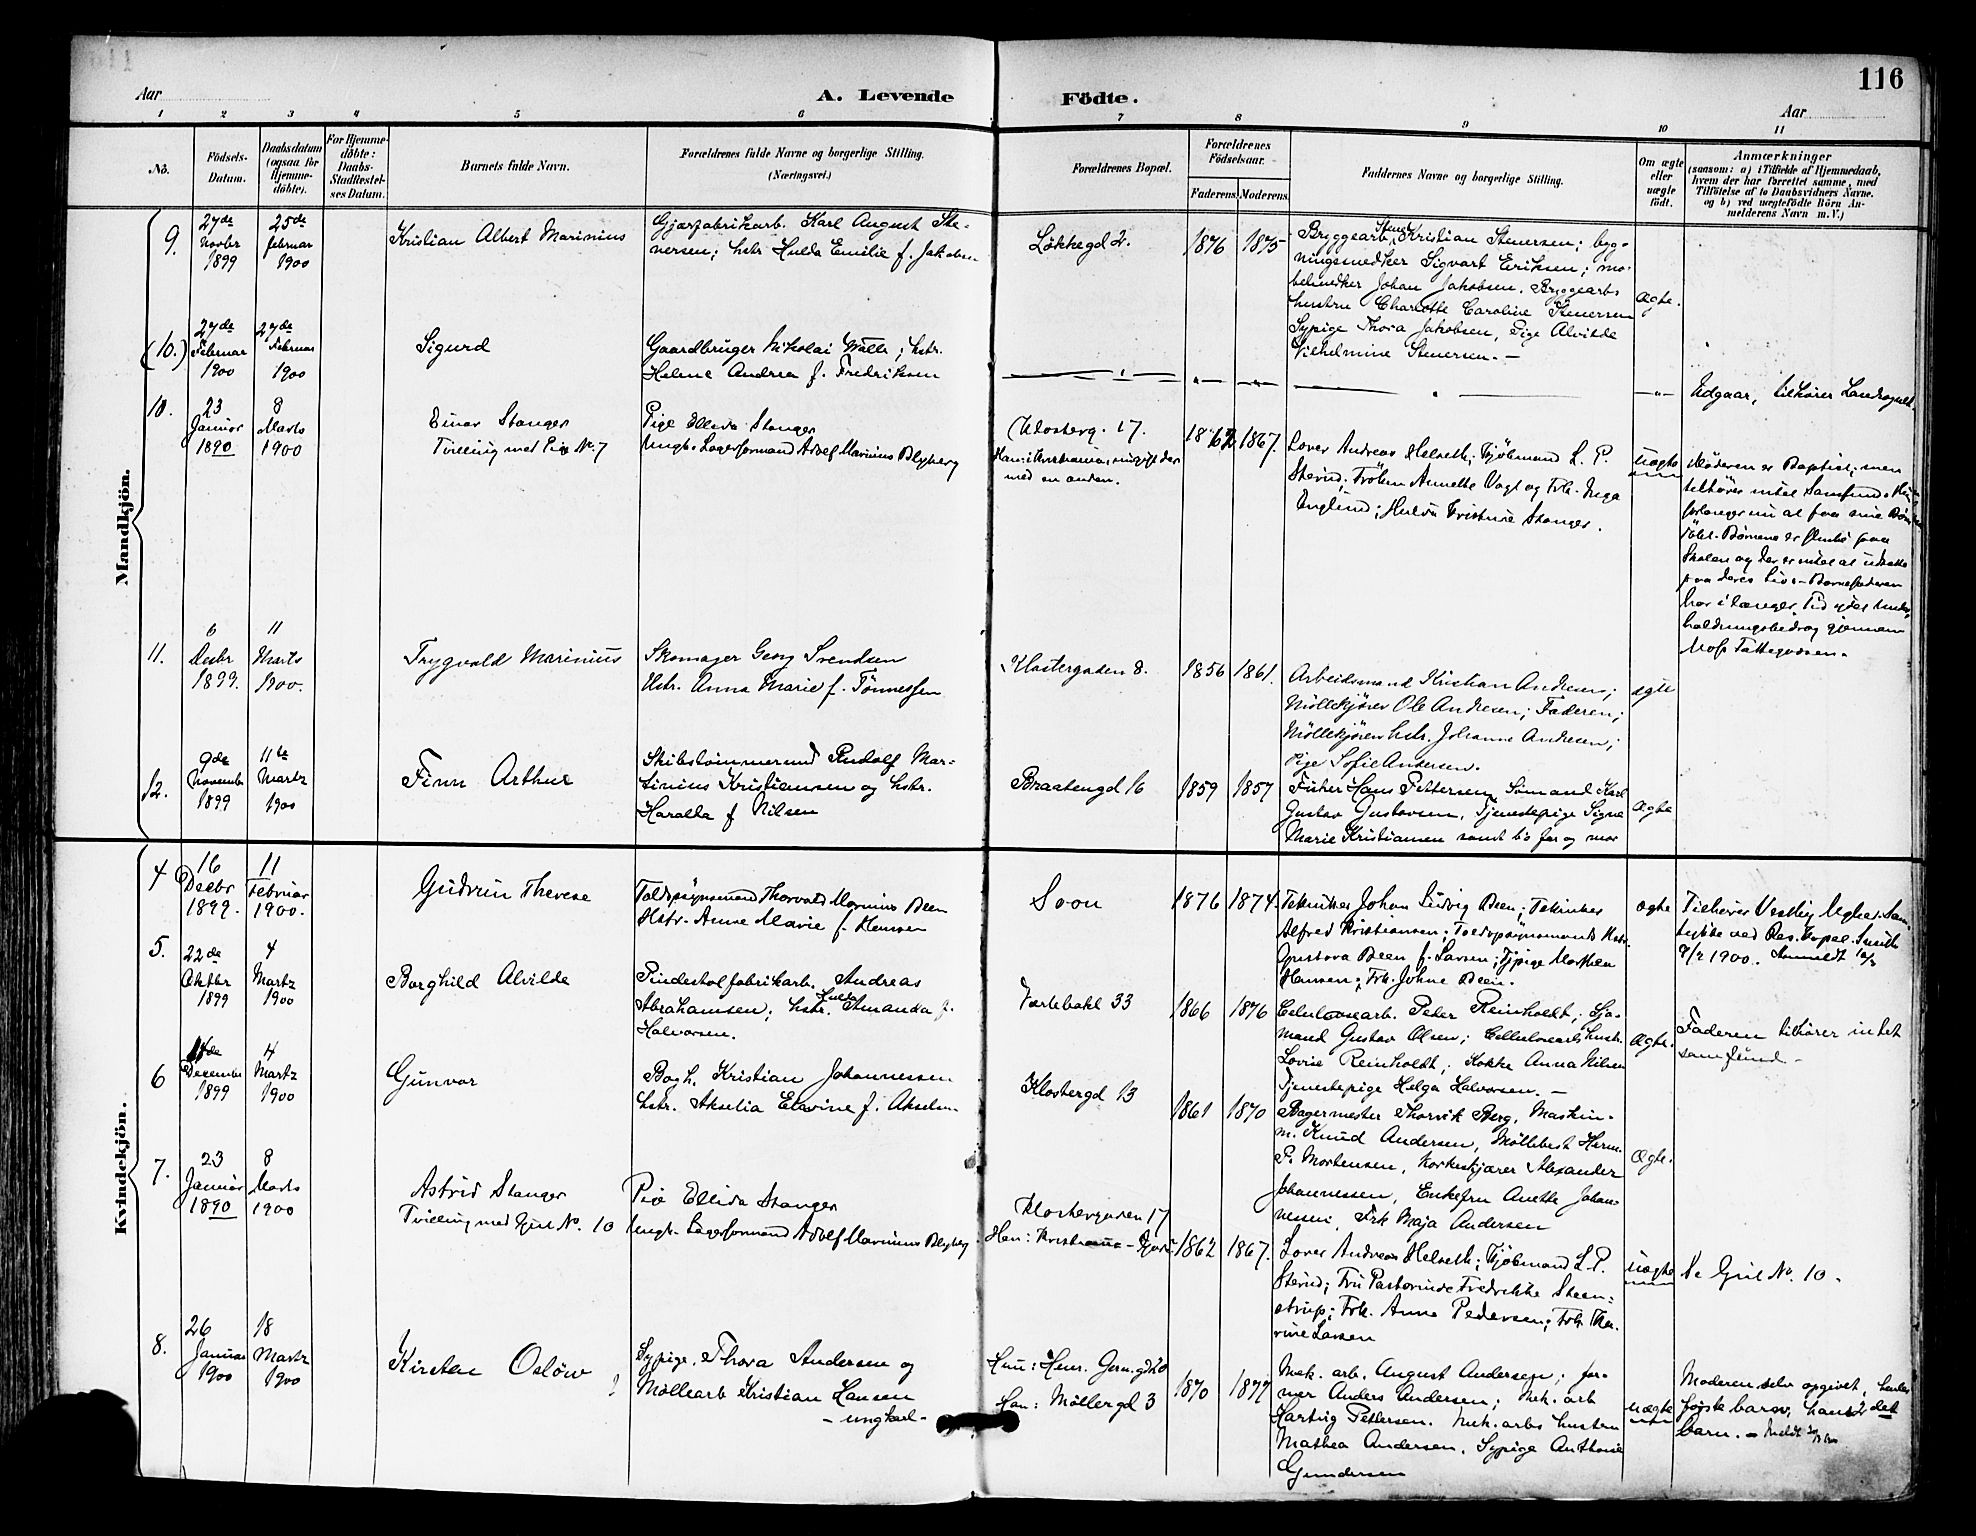 116
Aar
A. Levende Födte.
Aar
1 2 3 4 5 6 7 8 9 10 11
No.
Födsels-Datum.
Daabsdatum (ogsaa for Hjemme-döbte).
For Hjemme-döbte: Daabs-Stadfæstel-ses Datum.
Barnets fulde Navn.
Forældrenes fulde Navne og borgerlige Stilling.
(Næringsvei.)
Forældrenes Bopæl.
Forældrenes Födselsaar.
Faderens. Moderens.
Faddernes Navne og borgerlige Stilling.
Om ægte eller uægte födt.
Anmærkninger
(saasom: a) i Tilfælde af Hjemmedaab,
hvem der har forrettet samme, med
Tilföielse af to Daabsvidners Navne.
og b) ved uægtefödte Börn An-
melderens Navn m. V.)
Mandkjön.
9.
27de Novbr 1899
25de februar 1900
Kristian Albert Marinius
Gjærfabrikarb. Karl August Ste-
nersen; hstr. Hulda Emilie f. Jakobsen
Løkkegd 2.
1876 1875
Bryggearb. Kristian Stenersen; byg-
ningssnedker Sigvart Eriksen; mø-
belsnedker Johan Jakobsen. Bryggearbs
hustru Charlotte Caroline Stenersen
Sypige Thora Jakobsen, Pige Alvilde
Vilhelmine Stenersen. —
Ægte.
(10.)
27de Februar 1900
27de Februar 1900
Sigurd
Gaardbruger Nikolai Walle; hstr.
Helene Andrea f. Fredriksen
Udgaar, tilhører Landsognet.
10.
23 Januar 1890
8 Marts 1900
Einar Stanger
Tvilling med Pige No. 7
Pige Ellida Stanger
Ungk. Lagerformand Adolf Marinius Blyberg
Klosterg. 17.
Han i Kristiania, nu gift der
med en anden.
1862 1867.
Lærer Andreas Helseth; Kjøbmand L. P.
Sterud; Frøken Annette Vogt og Frk. Inga
Englund; Hulda Kristine Stanger.
Uægte
Moderen er Baptist; men
tilhører intet Samfund. Hun
forlanger nu at faa sine Børn
døbt. Børnene er flinke paa
Skolen og der er intet at udsætte
paa deres Liv. - Barnefaderen
har i længer Tid ydet Under-
holdningsbidrag gjennem
11.
6 Desbr 1899.
11 Marts 1900.
Trygvald Marinius
Skomager Georg Svendsen
Hstr. Anna Marie f. Tönnessen
Klostergaden 8.
1856 1861.
Arbeidsmand Kristian Andresen;
Möllekjörer Ole Andresen; Faderen;
Möllekjörer hstr. Johanne Andresen;
Pige Sofie Andersen.
ægte
12.
9de November 1899
11te Martz 1900
Finn Arthur
Skibstømmermd Rudolf Mar-
tinius Kristiansen og hstr.
Haralda f Nilsen
Braatengd 16
1859 1857
Fisker Hans Pettersen, Sømand Karl
Gustav Gustavsen, Tjenestepige Signe
Marie Kristiansen samt bs far og mor
Ægte
Kvindekjön.
4
16 Decbr 1899.
11 Februar 1900.
Gudrun Therese
Toldopsynsmand Thorvald Marinius Deen
Hstr. Anne Marie f. Hansen
Soon
1876 1874.
Tekniker Johan Ludvig Deen; Tekniker
Alfred Kristiansen; Toldopsynsmands Hstr.
Gustava Deen f. Larsen; Sypige Marthea
Hansen; Frk. Johne Deen.
ægte
Tilhører Vestby
5.
22de Oktbr 1899
4 Martz 1900
Borghild Alvilde
Pindestolfabrikarb. Andreas
Abrahamsen; hstr. Hulda Amanda f.
Halvorsen.
Værlebakk 33
1866 1876
Celulosearb. Peder Reinholdt; Sjø-
mand Gustav Olsen; Cellulosearbs hustr.
Lovise Reinholdt; Kokke Anna Nilsen
Tjenestepige Helga Halvorsen. —
Ægte.
Faderen tilhører intet
samfund —
6
December 1899
4 Martz 1900
Gunvor
Bogh. Kristian Johannessen
hstr. Akselia Elavine f. Akselsen
Klostergd 13
1861 1870
Bagermester Thorvik Berg, Maskin-
m. Knud Andersen, Møllebest Herm.
P. Mortensen, Korkeskjærer Alexander
Johannessen, Enkefru Anette Johan-
nessen, Frk Maja Andersen
Ægte.
7.
23 Januar 1890
8 Marts 1900
Astrid Stanger
Tvilling med Gut No. 10
Pige Ellida Stanger
Ungk. Lagerformand Adolf Marinius Blyberg
Klostergaden 17
Han: Kristiania
1862 1867.
Lærer Andreas Helseth; Kjøbmand L. P.
Sterud; Fru Pastorinde Fredrikke Steen-
strup; Frk. Anna Pedersen; Frk. Tha-
rine Larsen
Uægte
Se Gut No. 10.
8.
26 Januar 1900
18 Martz 1900
Kirsten Oslöw
Sypige Thora Andersen og
Møllearb Kristian Hansen
- ungkarl -
Hun: Henr. Gern. gd 20
Han: Møllergd 3
1870 1877
Mek. arb. August Andersen; for-
mer Anders Andersen; Mek. arb
Hartvig Pettersen. Mek. arbs hustru
Mathea Andersen, Sypige Anthonie
Gundersen
uægte
Moderen selv opgivet, hendes
første barn, hans 2det
barn. —